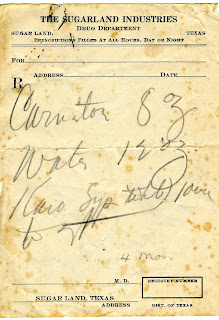 THE SUGARLAND INDUSTRIES
DRUG DEPARTMENT
SUGAR LAND, TEXAS
PRESCRIPTIONS FILLED AT ALL HOURS, DAY OR NIGHT
FOR
ADDRESS DATE
R
Carnation 8 oz
Water 12 oz
Karo Syp
to
4 Mon.
M. D.
REGISTRY NUMBER
SUGAR LAND, TEXAS
ADDRESS DIST. OF TEXAS